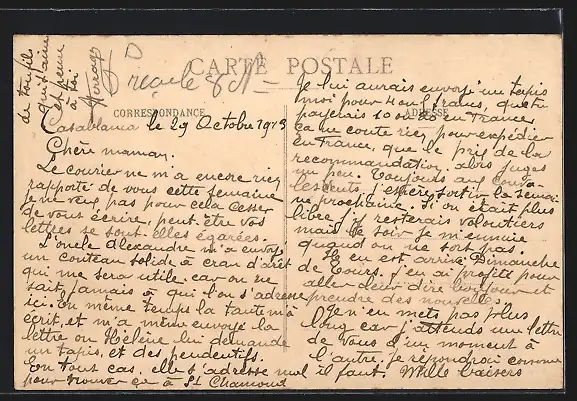 CARTE POSTALE
CORRESPONDANCE
ADRESSE
Reçue le 8 N
Casablanca le 29 Octobre 1913
Chère maman.
Le courier ne m'a encore rien
rapporté de vous cette semaine
je ne veux pas pour cela cesser
de vous écrire, peut être vos
lettres se sont elles égarées.
L'oncle Alexandre m'a envoyé
un couteau solide à cran d'arêt
qui me sera utile. car on ne
sait jamais à qui l'on s'adresse
ici. En même temps la tante m'a
écrit, et m'a même envoyé la
lettre ou Hélène lui demande
un tapis, et des pendentifs.
En tout cas. elle s'adresse mal
pour trouver ça à St Chamond
Je lui aurais envoyé un tapis
moi pour 4 ou 5 francs, que tu
payerais 10 ou 15 en France
ça me coute rien pour expédier
en France, que le prix de la
recommandation, alors juges
un peu. Toujours aux conva-
lescents, j'espère sortir la semai-
ne prochaine. Si on était plus
libre j'y resterais voloutiers
mais le soir je m'ennuie
quand on ne sort pas.
Il en est arrivé Dimanche
de Tours. j'en ai profité pour
aller leur dire bonjour et
prendre des nouvelles.
Je n'en mets pas plus
long car j'attends une lettre
de vous d'un moment à
l'autre, je répondrai comme
il faut. Mille baisers
de ton fils
qui t'aime
et pense
à toi